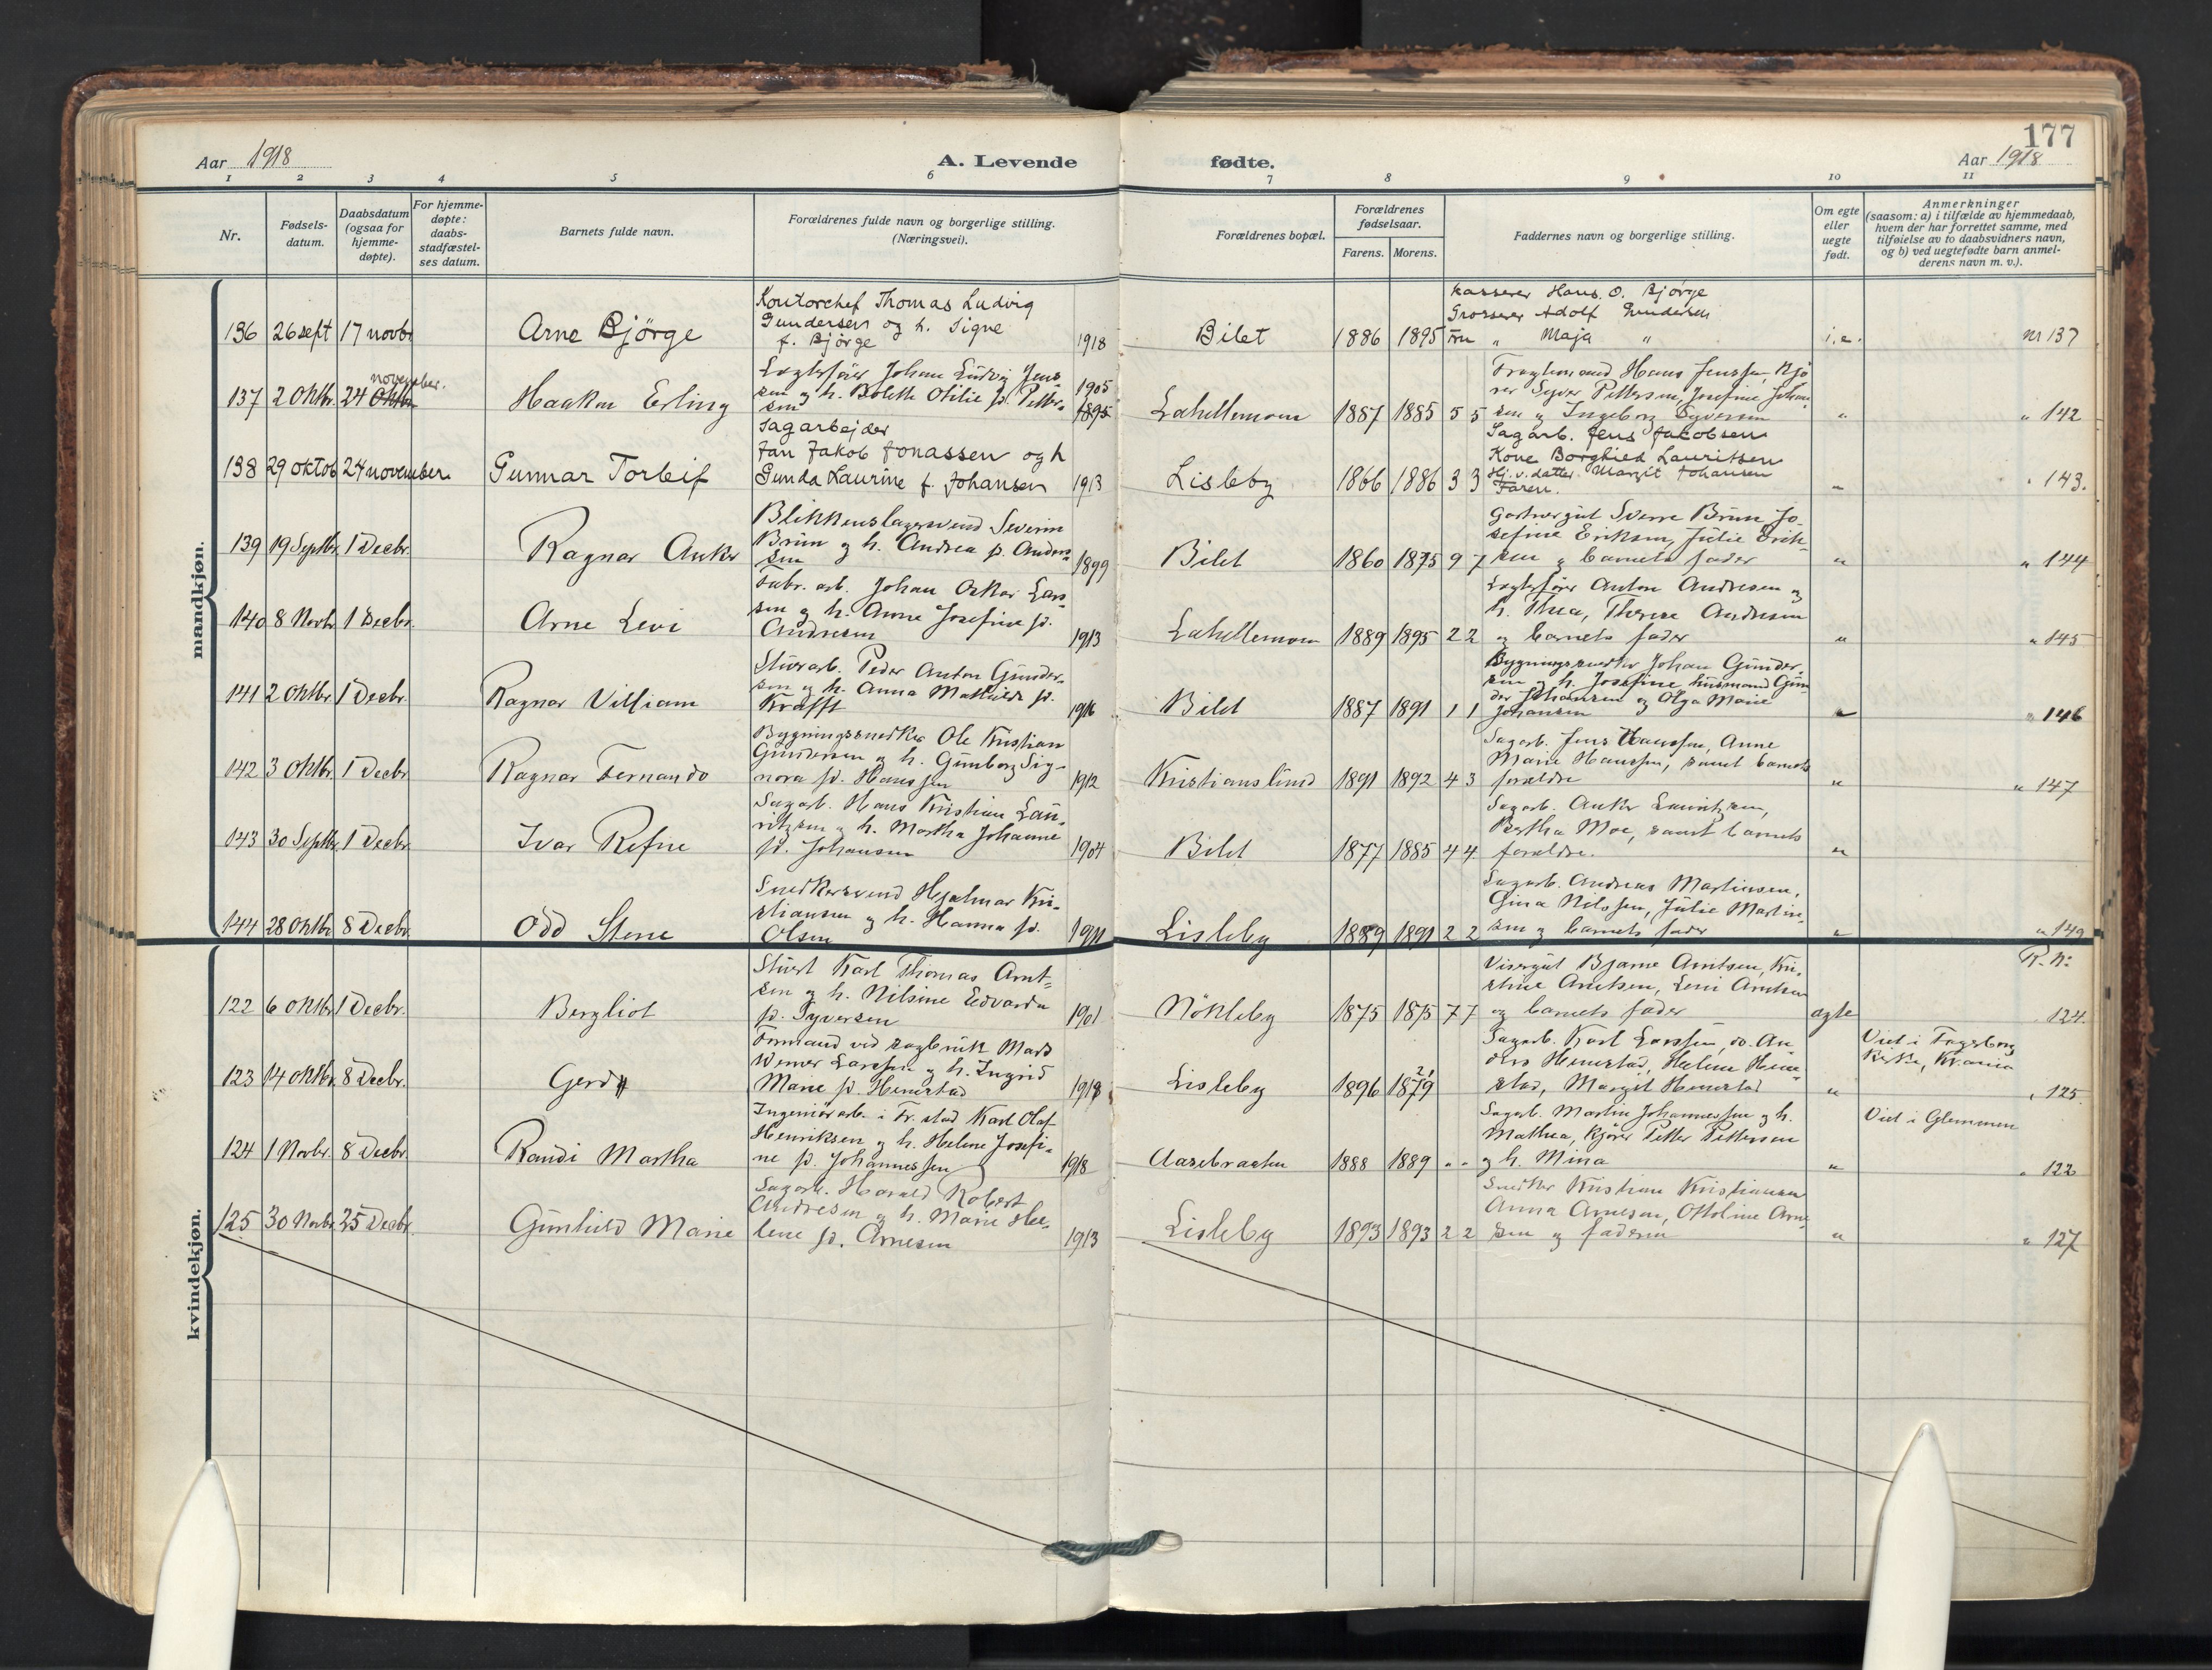 Aar 1918
A. Levende
fødte.
177
Aar 1918
1 2 3 4 5 6 7 8 9 10 11
Nr.
Fødsels-
datum.
Daabsdatum
(ogsaa for
hjemme-
døpte).
For hjemme-
døpte:
daabs-
stadfæstel-
ses datum.
Barnets fulde navn.
Forældrenes fulde navn og borgerlige stilling.
(Næringsvei).
Forældrenes bopæl.
Forældrenes
fødselsaar.
Farens. Morens.
Faddernes navn og borgerlige stilling.
Om egte
eller
uegte
født.
Anmerkninger
(saasom: a) i tilfælde av hjemmedaab,
hvem der har forrettet samme, med
tilføielse av to daabsvidners navn,
og b) ved uegtefødte barn anmel-
derens navn m. v.).
mandkjøn.
136 26 sept 17 novbr Arne Bjørge
Kontorchef Thomas Ludvig
Gundersen og h. Signe
f. Bjørge 1918
Bilet 1886 1895
Kasserer Hans. O. Bjørge
Grosserer Adolf Gundersen
Fru " Maja "
i. e. nr 137
137 2 Oktbr. 24 Oktbr november. Haakon Erling
Johan Ludvig Jens-
sen og h. Bolette Otilie fd. Petter-
sen 1905 1895
Lahellemoen 1887 1885 5 5
Hans Jenssen, Kjø-
rer Syver Pettersen, Josefine Johan-
sen og Ingeborg Syversen
" " 142
138 29 oktob 24 november. Gunnar Torleif
Sagarbejder
Jan Jakob Jonassen og h
Gunda Laurine f. Johansen 1913
Lisleby 1866 1886 3 3
Sagarb. Jens Jakobsen
Kone Borghild Lauritsen
Hj. v. datter. Margit Johansen
Faren.
" " 143.
139 19 Septbr. 1 Decbr. Ragnar Anker
Blikkenslagersvend Severin
Brun og h. Andrea fd. Anders-
sen 1899
Bilet 1860 1875 9 7
Gartnergut Sverre Brun Jo-
sefine Eriksen, Julie Erik-
sen og barnets fader
" " 144
140 8 Novbr. 1 Decbr. Arne Levi
Fabr. arb. Johan Oskar Lars-
sen og h. Anne Josefine fd.
Andresen 1913
Lahellemoen 1889 1895 2 2
Anton Andresen og
h. Thea, Therese Andresen
og barnets fader
" " 145
141 2 Oktbr. 1 Decbr. Ragnar Villiam
Stuerarb. Peder Anton Gunder-
sen og h. Anna Mathilde fd.
Krafft 1916
Bilet 1887 1891 1 1
Bygningssnedker Johan Gunder-
sen og h. Josefine husmand Gun-
der Johansen og Olga Marie
Johansen
" " 146
142 3 Oktbr. 1 Decbr Ragnar Fernando
Bygningssnedker Ole Kristian
Gundersen og h. Gunborg Sig-
nora fd. Hanssen 1912
Kristianslund 1891 1892 4 3
Sagarb. Jens Hanssen, Anne
Marie Hanssen, samt barnets
forældre
" " 147
143 30 Septbr. 1 Decbr Ivar Refine
Sagarb. Hans Kristian Lau-
ritzsen og h. Martha Johanne
fd. Johansen 1904
Bilet 1877 1885 4 4
Sagarb. Anker Lauritzsen,
Bertha Moe, samt barnets
forældre.
"
144 28 Oktbr 8 Decbr. Odd Stene
Snedkersvend Hjalmar Kri-
stiansen og h. Hanna fd.
Olsen 1911
Lisleby 1889 1891 2 2
Sagarb. Andreas Martinsen,
Gina Nilssen, Julie Martin-
sen og barnets fader
" " 149
kvindekjøn.
122 6 Oktbr 1 Decbr. Bergliot
Stuert Karl Thomas Arnt-
sen og h. Nilsine Edvarda
fd. Syversen 1901
Nökleby 1875 1875 7 7
Visergut Bjarne Arntsen, Kri-
stine Arntsen, Leni Arntsen
og barnets fader
egte R. Nr
124.
123 14 Oktbr. 8 Decbr. Gerd
Formand ved sagbruk Mads
Werner Larssen og h. Ingrid
Marie fd. Hemstad 1918
Lisleby 1896 1879
Sagarb. Karl Larssen, do. An-
ders Hemstad, Helene Hem-
stad, Margit Hemstad
" Viet i Fagerborg
Kirke, Kr.ania
" 125
124 1 Novbr. 8 Decbr. Randi Martha
Ingeniørarb. i Fr. stad Karl Olaf
Henriksen og h. Helene Josefi-
ne fd. Johannessen 1918
Aasebraaten 1888 1889 " "
Sagarb. Martin Johannessen og h.
Mathea, Kjører Petter Pettersen
og h. Mina
" Viet i Glemmen
" 122
125 30 Novbr. 25 Decbr. Gunhild Marie
Sagarb. Harald Robert
Andresen og h. Marie He-
lene fd. Arnesen 1913
Lisleby 1893 1893 2 2
Snedker Kristian Kristiansen
Anna Arnesen, Ottoline Arne-
sen og faderen
" " 127